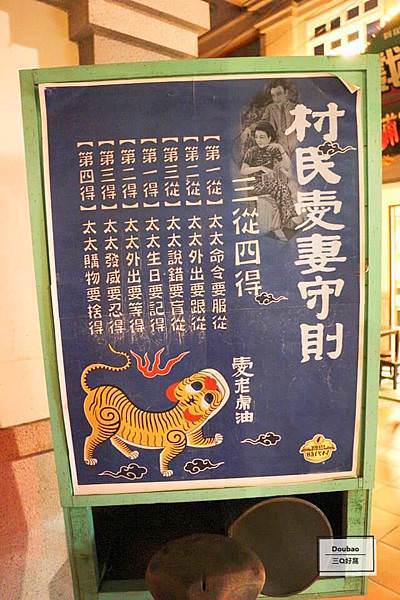 村民愛妻守則
三從四得
【第一從】太太命令要服從
【第二從】太太外出要跟從
【第三從】太太說錯要盲從
【第一得】太太生日要記得
【第二得】太太外出要等得
【第三得】太太發威要忍得
【第四得】太太購物要捨得
愛老虎油
Doubao
三Q好窩